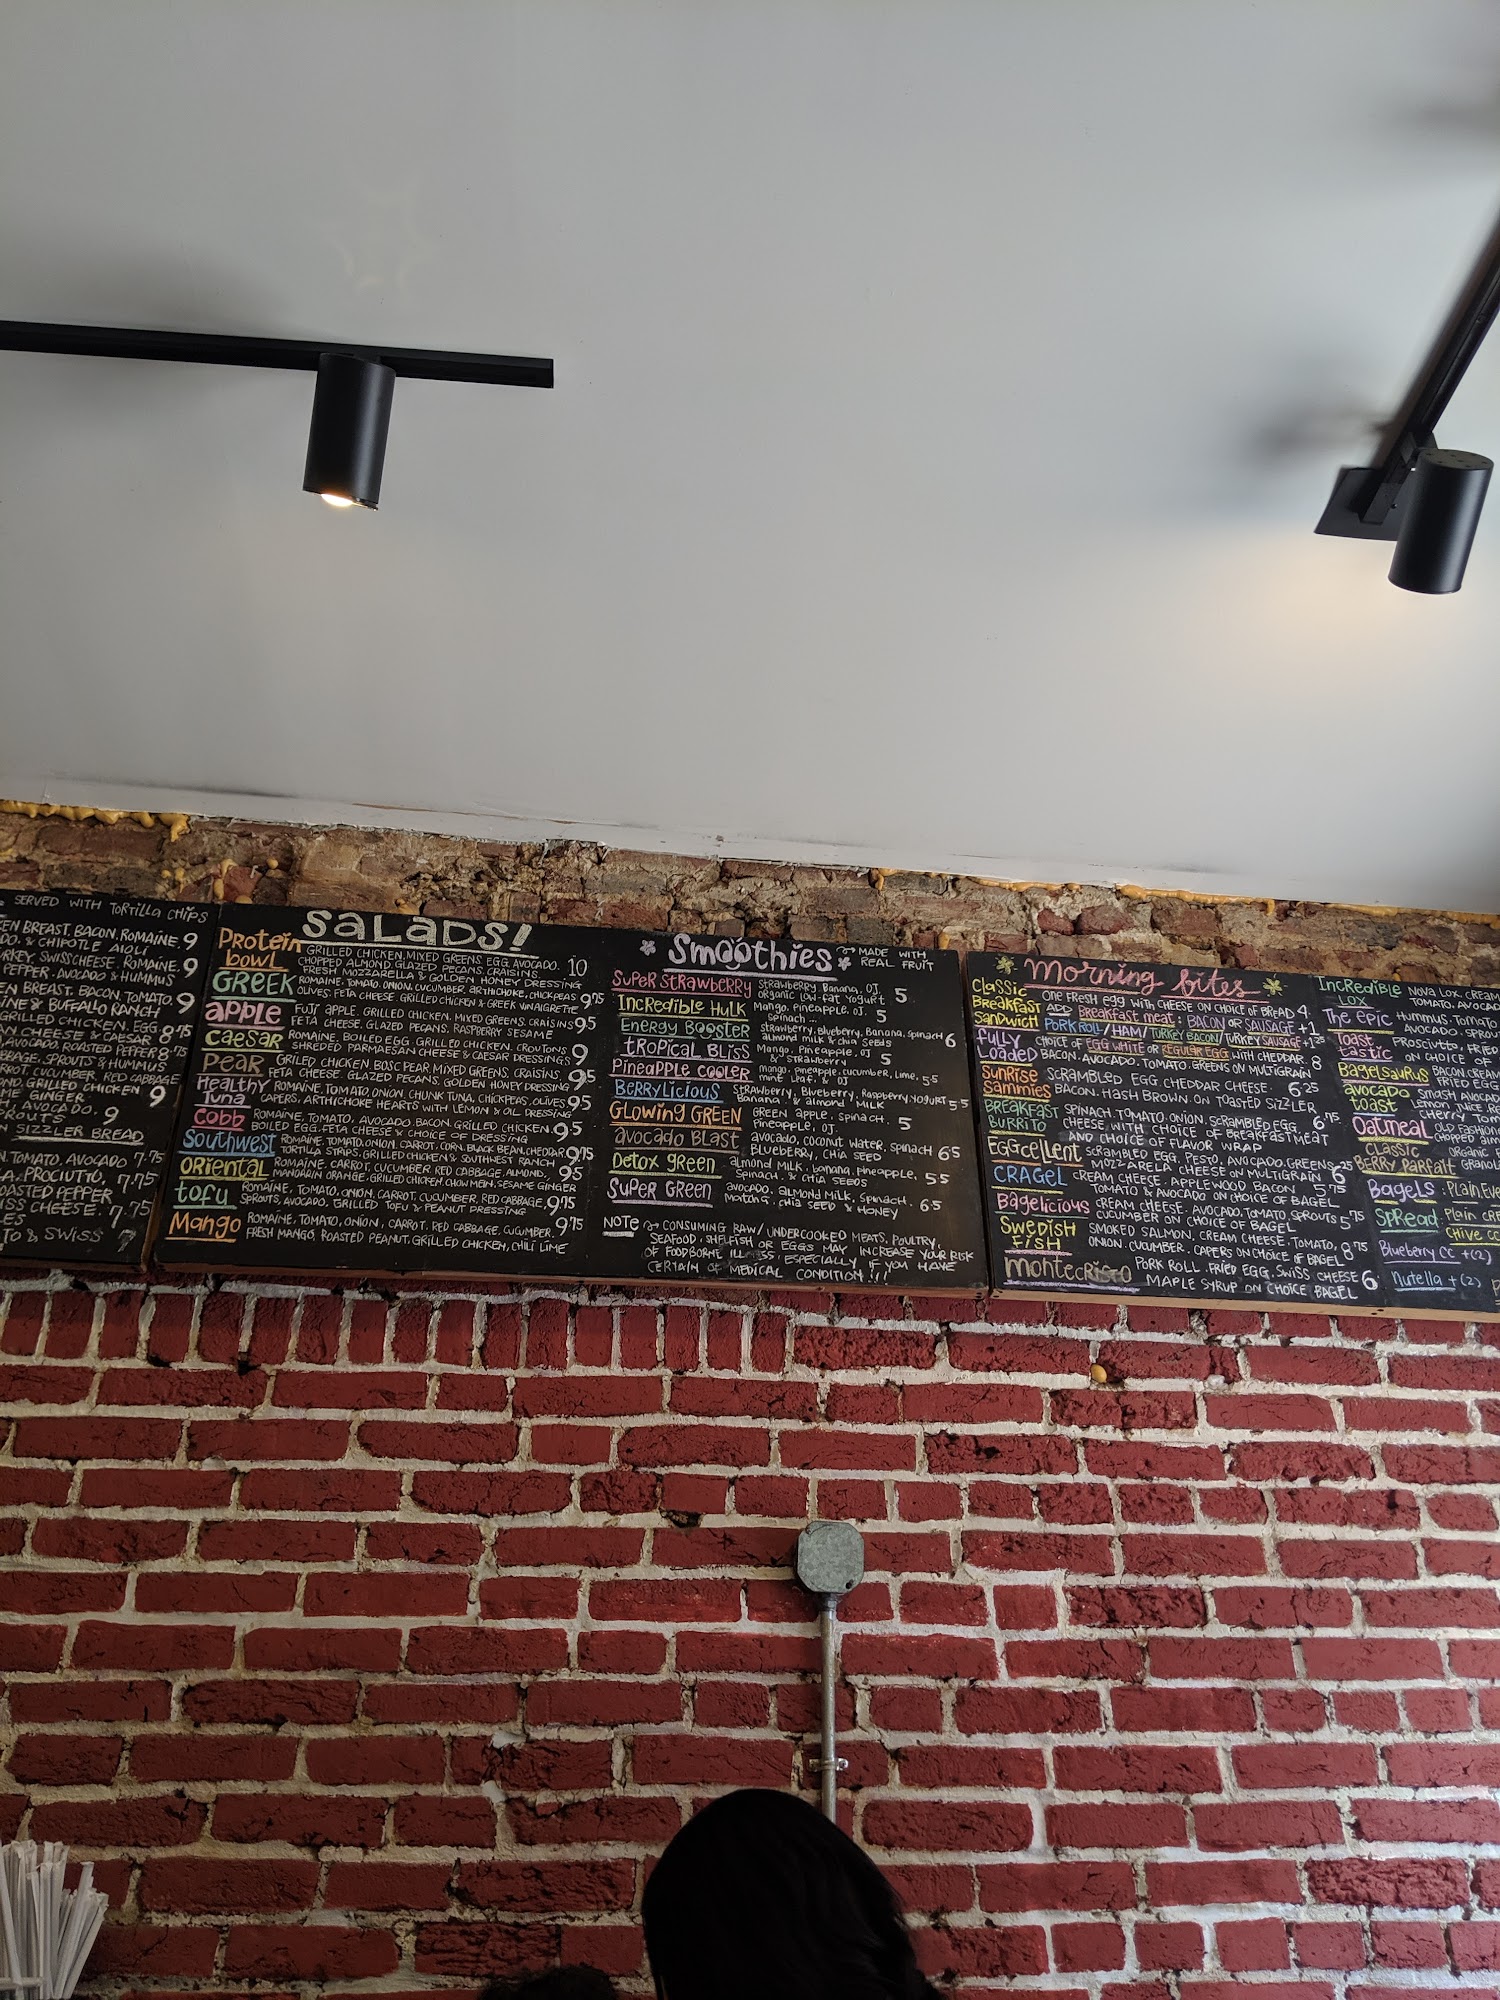 SERVED WITH TORTILLA CHIPS
EN BREAST, BACON, ROMAINE, 9
DO, & CHIPOTLE AIOLI
RKEY, SWISS CHEESE, ROMAINE, 9
PEPPER, AVOCADO & HUMMUS
EN BREAST, BACON, TOMATO, 9
INE & BUFFALO RANCH
GRILLED CHICKEN, EGG, 8.75
AN CHEESE & CAESAR
AVOCADO, ROASTED PEPPER 8.75
BBAGE, SPROUTS & HUMMUS
RROT, CUCUMBER, RED CABBAGE
OND, GRILLED CHICKEN 9
ME GINGER
AVOCADO, 9
PROUTS
N SIZZLER BREAD
N, TOMATO, AVOCADO 7.75
LA, PROCIUTTO, 7.75
OASTED PEPPER
ISS CHEESE, 7.75
LES
TO & SWISS 7
SALADS!
PROTEIN BOWL GRILLED CHICKEN, MIXED GREENS, EGG, AVOCADO, 10
CHOPPED ALMOND, GLAZED PECANS, CRAISINS
FRESH MOZZARELLA & GOLDEN HONEY DRESSING
GREEK ROMAINE, TOMATO, ONION, CUCUMBER, ARTHICHOKE, CHICKPEAS 9.75
OLIVES, FETA CHEESE, GRILLED CHICKEN & GREEK VINAIGRETTE
apple FUJI APPLE, GRILLED CHICKEN, MIXED GREENS, CRAISINS 9.5
FETA CHEESE, GLAZED PECANS, RASPBERRY SESAME
caesar ROMAINE, BOILED EGG, GRILLED CHICKEN, CROUTONS 9
SHREDED PARMAESAN CHEESE & CAESAR DRESSINGS
PEAR GRILLED CHICKEN, BOSC PEAR, MIXED GREENS, CRAISINS, 9.5
FETA CHEESE GLAZED PECANS, GOLDEN HONEY DRESSING
HEALTHY TUNA ROMAINE, TOMATO, ONION, CHUNK TUNA, CHICKPEAS, OLIVES 9.5
CAPERS, ARTHICHOKE HEARTS WITH LEMON & OIL DRESSING
cobb ROMAINE, TOMATO, AVOCADO, BACON, GRILLED CHICKEN, 9.5
BOILED EGG, FETA CHEESE & CHOICE OF DRESSING
southwest ROMAINE, TOMATO, ONION, CARROT, CORN, BLACK BEAN, CHEDAR, 9.75
TORTILLA STRIPS, GRILLED CHICKEN & SOUTHWEST RANCH
ORIENTAL ROMAINE, CARROT, CUCUMBER, RED CABBAGE, ALMOND, 9.5
MANDARIN ORANGE, GRILLED CHICKEN, CHOW MEIN, SESAME GINGER
tofu ROMAINE, TOMATO, ONION, CARROT, CUCUMBER, RED CABBAGE, 9.75
SPROUTS, AVOCADO, GRILLED TOFU & PEANUT DRESSING
Mango ROMAINE, TOMATO, ONION, CARROT, RED CABBAGE, CUCUMBER, 9.75
FRESH MANGO, ROASTED PEANUT, GRILLED CHICKEN, CHILI LIME
Smoothies MADE WITH REAL FRUIT
SUPER STRAWBERRY Strawberry, Banana, OJ, 5
organic low-fat Yogurt
INCREDIBLE HULK Mango, Pineapple, OJ, 5
Spinach
ENERGY BOOSTER strawberry, Blueberry, Banana, spinach 6
almond milk & chia seeds
TROPICAL BLISS Mango, Pineapple, OJ 5
& strawberry
PINEAPPLE COOLER mango, pineapple, cucumber, lime, 5.5
mint leaf, & OJ
BERRYLICIOUS Strawberry, Blueberry, Raspberry Yogurt 5.5
Banana, & almond MILK
GLOWING GREEN GREEN apple, spinach, 5
Pineapple, OJ.
avocado BLAST avocado, coconut water, spinach 6.5
BLUEBERRY, CHIA SEED
DETOX GREEN almond MILK, banana, pineapple, 5.5
Spinach, & CHIA SEEDS
SUPER GREEN avocado, almond Milk, Spinach, 6.5
Matcha, chia seed & HONEY
NOTE CONSUMING RAW/UNDERCOOKED MEATS, POULTRY,
SEAFOOD, SHELFISH OR EGGS MAY INCREASE YOUR RISK
OF FOODBORNE ILLNESS, ESPECIALLY IF YOU HAVE
CERTAIN OF MEDICAL CONDITION!!!
Morning bites
CLASSIC BREAKFAST SANDWICH ONE FRESH egg WITH CHEESE ON CHOICE OF BREAD 4
ADD BREAKFAST MEAT: BACON OR SAUSAGE +1
PORK ROLL/HAM/TURKEY BACON/TURKEY SAUSAGE +1.25
FULLY LOADED CHOICE OF EGG WHITE OR REGULAR EGG WITH CHEDDAR, 8
BACON, AVOCADO, TOMATO, GREENS ON MULTIGRAIN
SUNRISE SAMMIES SCRAMBLED EGG, CHEDDAR CHEESE, 6.25
BACON, HASH BROWN ON TOASTED SIZZLER
BREAKFAST BURRITO SPINACH, TOMATO, ONION, SCRAMBLED EGG, 6.75
CHEESE, WITH CHOICE OF BREAKFAST MEAT
AND CHOICE OF FLAVOR WRAP
EGGCELLENT SCRAMBLED EGG, PESTO, AVOCADO, GREENS, 6.25
MOZZARELA CHEESE ON MULTIGRAIN
CRAGEL CREAM CHEESE, APPLEWOOD BACON 5.75
TOMATO & AVOCADO ON CHOICE OF BAGEL
BAGELICIOUS CREAM CHEESE, AVOCADO, TOMATO SPROUTS 5.75
CUCUMBER ON CHOICE OF BAGEL
SWEDISH FISH SMOKED SALMON, CREAM CHEESE, TOMATO, 8.75
ONION, CUCUMBER, CAPERS ON CHOICE OF BAGEL
MONTECRISTO PORK ROLL, FRIED EGG, SWISS CHEESE 6
MAPLE SYRUP ON CHOICE BAGEL
INCREDIBLE LOX NOVA LOX, CREAM
TOMATO, AVOCAD
The epic HUMMUS, TOMATO
AVOCADO, SPROU
Toast tastic PROSCIUTTO, FRIED
ON CHOICE
BAGELSAURUS BACON, CREAM
FRIED EGG
avocado toast SMASH AVOCADO
LEMON JUICE
CHERRY
Oatmeal OLD FASHION
CHOPPED
CLASSIC BERRY PARFAIT ORGANIC
GRANOLA
Bagels PLAIN, EVE
SPREAD PLAIN CR
CHIVE CC
Blueberry CC +(2)
Nutella +(2)